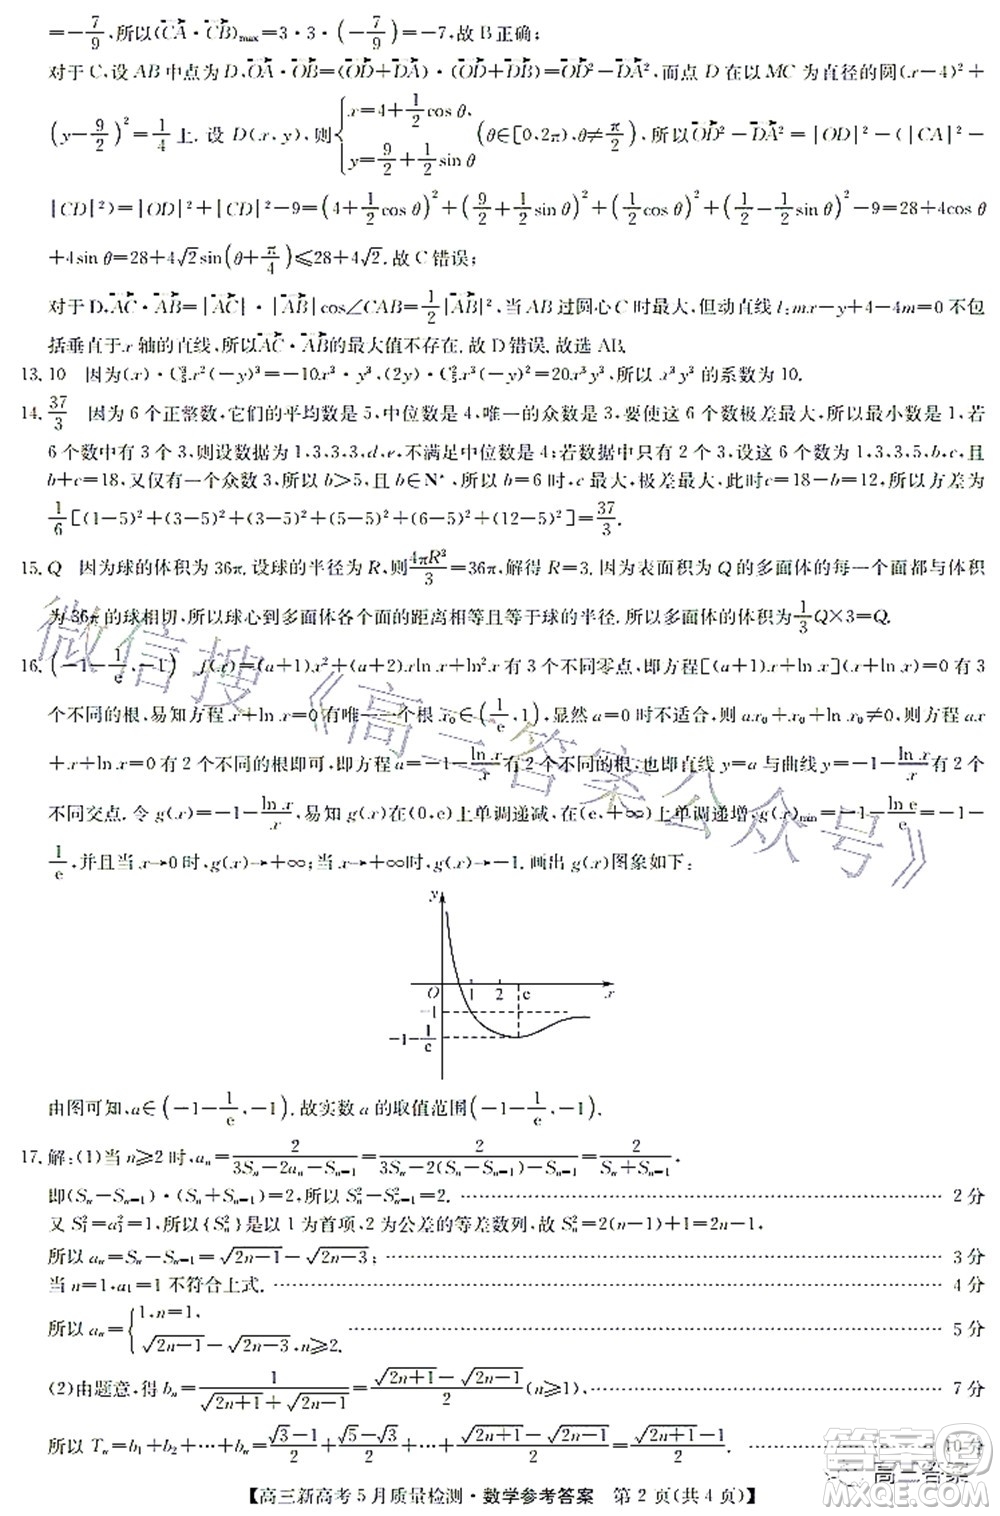 =-7/9,所以(CA·CB)max=3·3·(-7/9)=-7,故 B 正确;
对于 C,设 AB 中点为 D,OA·OB=(OD+DA)·(OD+DB)=OD²-DA²,而点 D 在以 MC 为直径的圆(x-4)²+
(y-9/2)²=1/4上. 设 D(x,y),则{x=4+1/2cos θ, y=9/2+1/2sin θ (θ∈[0,2π),θ≠π/2),所以OD²-DA²=|OD|²-(|CA|²-
|CD|²)=|OD|²+|CD|²-9=(4+1/2cos θ)²+(9/2+1/2sin θ)²+(1/2cos θ)²+(1/2-1/2sin θ)²-9=28+4cos θ
+4sin θ=28+4√2sin(θ+π/4)≤28+4√2.故 C 错误;
对于 D,AC·AB=|AC|·|AB|cos∠CAB=1/2|AB|²,当 AB 过圆心 C 时最大,但动直线 l:mx-y+4-4m=0 不包
括垂直于 x 轴的直线,所以AC·AB的最大值不存在. 故 D 错误. 故选 AB.
13. 10 因为(x)·C₅³x²(-y)³=-10x³y³,(2y)·C₅²x³(-y)²=20x³y³,所以 x³y³ 的系数为 10.
14. 37/3 因为 6 个正整数,它们的平均数是 5,中位数是 4,唯一的众数是 3,要使这 6 个数极差最大,所以最小数是 1,若
6 个数中有 3 个 3,则设数据为 1,3,3,3,d,e,不满足中位数是 4;若数据只有 2 个 3,设这 6 个数是 1,3,3,5,b,c,且
b+c=18,又仅有一个众数 3,所以 b>5,且 b∈N*,所以 b=6 时,c 最大,极差最大,此时=18-b=12,所以方差为
1/6[(1-5)²+(3-5)²+(3-5)²+(5-5)²+(6-5)²+(12-5)²]=37/3.
15. Q 因为球的体积为 36π. 设球的半径为 R,则4πR³/3=36π,解得 R=3. 因为表面积为 Q 的多面体的每一个面都与体积
为 36π 的球相切,所以球心到多面体各个面的距离相等且等于球的半径. 所以多面体的体积为1/3Q×3=Q.
16. (-1-1/e,-1) f(x)=(a+1)x²+(a+2)xln x+ln²x 有 3 个不同零点,即方程[(a+1)x+ln x](x+ln x)=0 有 3
个不同的根,易知方程 x+ln x=0 有唯一一个根 x₀∈(1/e,1),显然 a=0 时不适合,则 ax₀+x₀+ln x₀≠0,故方程 ax
+x+ln x=0 有 2 个不同的根,即方程 a=-1-ln x/x有 2 个不同的根. 也即直线 y=a 与曲线 y=-1-ln x/x有 2 个
不同交点. 令 g(x)=-1-ln x/x,易知 g(x)在(0,e)上单调递减,在(e,+∞)上单调递增,g(x)min=-1-ln e/e=-1-
1/e,并且当 x→0 时,g(x)→+∞;当 x→+∞时,g(x)→-1. 画出 g(x)图象如下:
y
O 1 2 e x
-1
-1-1/e
由图可知,a∈(-1-1/e,-1). 故实数 a 的取值范围(-1-1/e,-1).
17. 解:(1)当 n≥2 时,aₙ=2/(3Sₙ-2aₙ-Sₙ₋₁)=2/(3Sₙ-2(Sₙ-Sₙ₋₁)-Sₙ₋₁)=2/(Sₙ+Sₙ₋₁).
即(Sₙ-Sₙ₋₁)·(Sₙ+Sₙ₋₁)=2,所以 Sₙ²-Sₙ₋₁²=2. 2 分
又 S₁²=a₁²=1,所以{Sₙ²}是以 1 为首项,2 为公差的等差数列,故 Sₙ²=2(n-1)+1=2n-1,
所以 aₙ=Sₙ-Sₙ₋₁=√(2n-1)-√(2n-3); 3 分
当 n=1,a₁=1 不符合上式. 4 分
所以 aₙ={1,n=1, √(2n-1)-√(2n-3),n≥2. 5 分
(2)由题意,得 bₙ=1/(√(2n-1)+√(2n+1))=(√(2n+1)-√(2n-1))/2(n≥1), 7 分
所以 Tₙ=b₁+b₂+…+bₙ=(√3-1)/2+(√5-√3)/2+…+(√(2n+1)-√(2n-1))/2=(√(2n+1)-1)/2. 10 分
【高三新高考 5 月质量检测·数学参考答案 第 2 页(共 4 页)】
微信搜《高三答案公众号》
高三答案